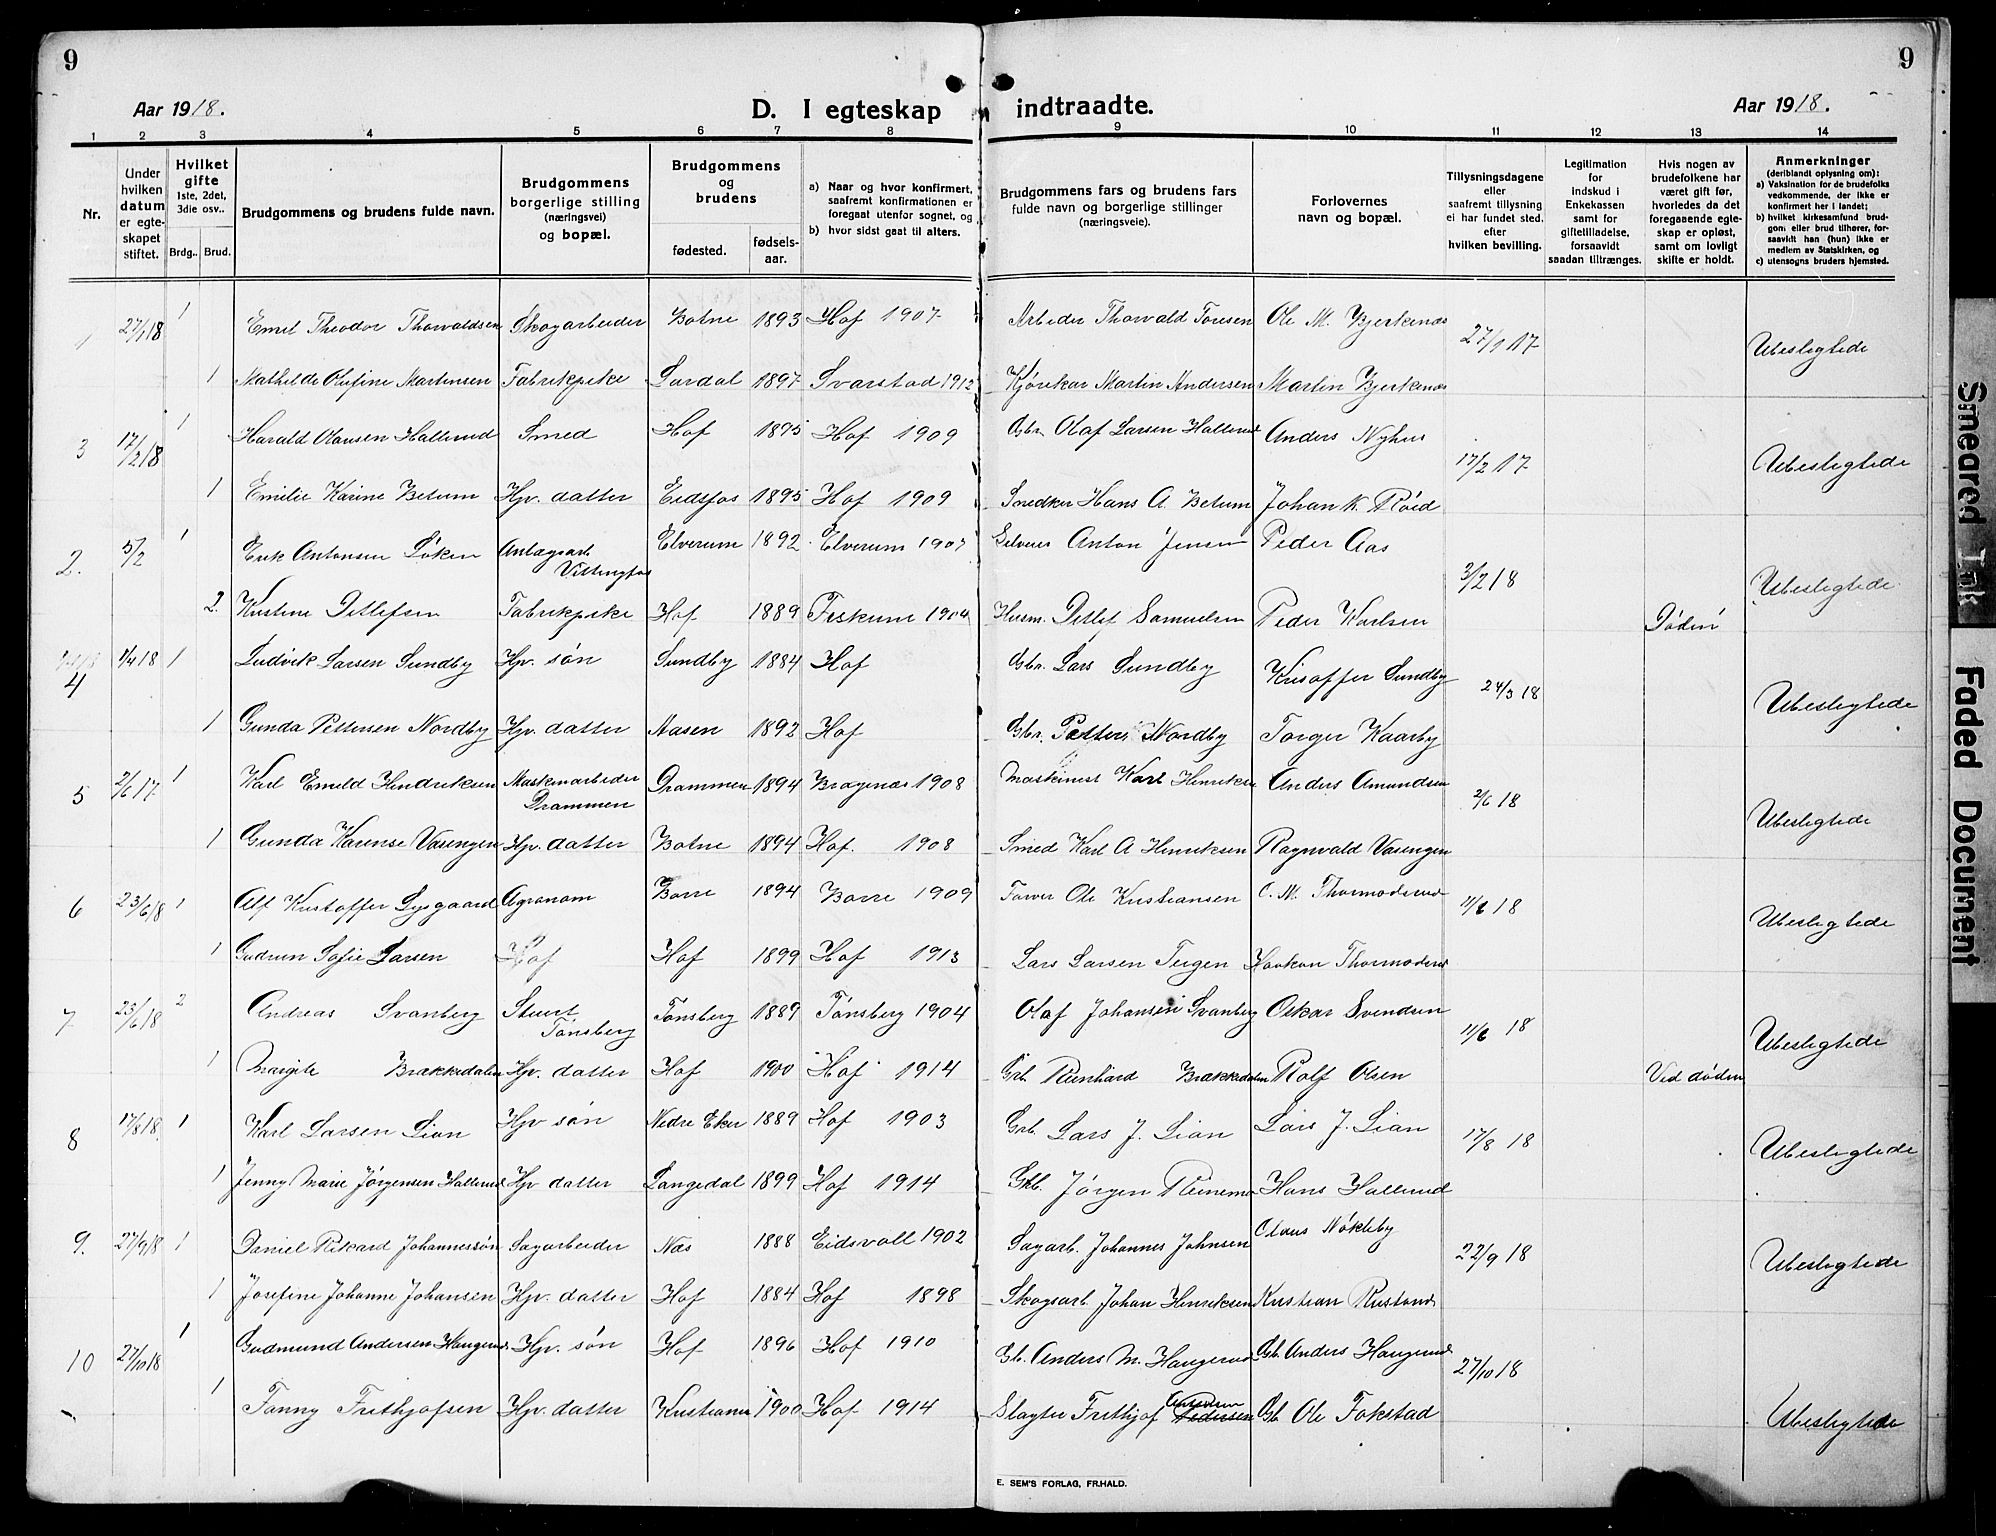 9
9
Aar 1918.
D. I egteskap indtraadte.
Aar 1918.
1 2 3 4 5 6 7 8 9 10 11 12 13 14
Nr.
Under hvilken datum er egteskapet stiftet.
Hvilket gifte 1ste, 2det, 3die osv..
Brdg.. Brud.
Brudgommens og brudens fulde navn.
Brudgommens borgerlige stilling (næringsvei) og bopæl.
Brudgommens og brudens
fødested.
fødselsaar.
a) Naar og hvor konfirmert, saafremt konfirmationen er foregaat utenfor sognet, og
b) hvor sidst gaat til alters.
Brudgommens fars og brudens fars fulde navn og borgerlige stillinger (næringsveie).
Forlovernes navn og bopæl.
Tillysningsdagene eller saafremt tillysning ei har fundet sted. efter hvilken bevilling.
Legitimation for indskud i Enkekassen samt for giftetilladelse, forsaavidt saadan tiltrænges.
Hvis nogen av brudefolkene har været gift før, hvorledes da det foregaaende egteskap er opløst, samt om lovligt skifte er holdt.
Anmerkninger (deriblandt oplysning om):
a) Vaksination for de brudefolks vedkommende, der ikke er konfirmert her i landet;
b) hvilket kirkesamfund brudgom eller brud tilhører, forsaavidt han (hun) ikke er medlem av Statskirken, og
c) utensogns bruders hjemsted.
1 27/1 18 1 Emil Theodor Thorvaldsen Skogarbeider Botne 1893 Hof 1907 Arbeider Thorvald Toresen Ole M. Bjerkenæs 27/1 17 Ubeslegtede
1 Mathilde Olufine Martinsen Fabrikpike Lardal 1897 Svarstad 1912 Kjørekar Martin Andersen Martin Bjerkenæs
3 17/2 18 1 Harald Olausen Hallerud Smed Hof 1895 Hof 1909 Gbr. Olaf Larsen Hallerud Anders Nyhus 17/2 17 Ubeslegtede
1 Emilie Karine Betum Hp. datter Eidsfos 1895 Hof 1909 Snedker Hans A. Betum Johan K. Røed
2. 5/2 1 Erik Antonsen Løken Anlægsarb. Vittingfos Elverum 1892 Elverum 1907 Selveier Anton Jensen Peder Aas 3/2 18 Ubeslegtede
2. Kristine Detlefsen Fabrikpike Hof 1889 Fiskum 1904 Husm. Detlef Samuelsen Peder Karlsen Døden
4 1/4 18 1 Ludvik Larsen Sundby Hp. søn Sundby 1884 Hof Gbr. Lars Sundby Krisoffer Sundby 24/3 18 Ubeslegtede
1 Gunda Pettersen Nordby Hp. datter Aasen 1892 Hof Gbr. Petter Nordby Torger Kaarby
5 2/6 17 1 Karl Emeld Hendriksen Maskinarbeider Drammen Drammen 1894 Bragenæs 1908 Maskinist Karl Henriksen Anders Amundsen 2/6 18 Ubeslegtede
1 Gunda Karense Vasengen Hp. datter Botne 1894 Hof. 1908 Smed Karl A Henriksen Ragnvald Vasengen
6 23/6 18 1 Alf Kristoffer Lysgaard Agronom Borre 1894 Borre 1909 Farver Ole Kristiansen C. M. Thormodsrud 11/6 18 Ubeslegtede
1 Gudrun Sofie Larsen Hof Hof 1899 Hof 1913 Lars Larsen Teigen Haakon Thormodsrud
7 23/6 18 2 Andreas Svanberg Stuert Tønsberg Tønsberg 1889 Tønsberg 1904 Olaf Johansen Svanberg Oskar Svendsen 11/6 18 Ubeslegtede
1 Margite Brækkedalen Hp. datter Hof 1900 Hof 1914 Grb. Reinhard Brækkedalen Rolf Olsen Ved døden
8 17/8 18. 1 Karl Larsen Lian Hp søn Nedre Eker 1889 Hof 1903 Grb. Lars J. Lian Lars J. Lian 17/8 18 Ubeslegtede
1 Jenny Marie Jørgensen Hallerud Hp datter Langedal 1899 Hof 1914 Gbb. Jørgen Reinemo Hans Hallerud
9. 27/9 18 1 Daniel Rikard Johannessøn Sagarbeider Næs 1888 Eidsvoll 1902 Sagarb. Johannes Johnsen Olaus Nøkleby 22/9 18 Ubeslegtede
1 Josefine Johanne Johansen Hp. datter Hof 1884 Hof 1898 Skogsarb. Johan Henriksen Kristian Rustand
10 27/10 18 1 Gudmund Andersen Haugerud Hp. søn Hof 1896 Hof 1910 Gb. Anders M. Haugerud Gb. Anders Haugerud 27/10 18
1 Fanny Frithjofsen Hp. datter Kristiania 1900 Hof 1914 Slagter Frithjof Pedersen Gb Ole Fokstad Ubeslegtede
E. SEM'S FORLAG, FR.HALD.
Smeared Ink
Faded Document